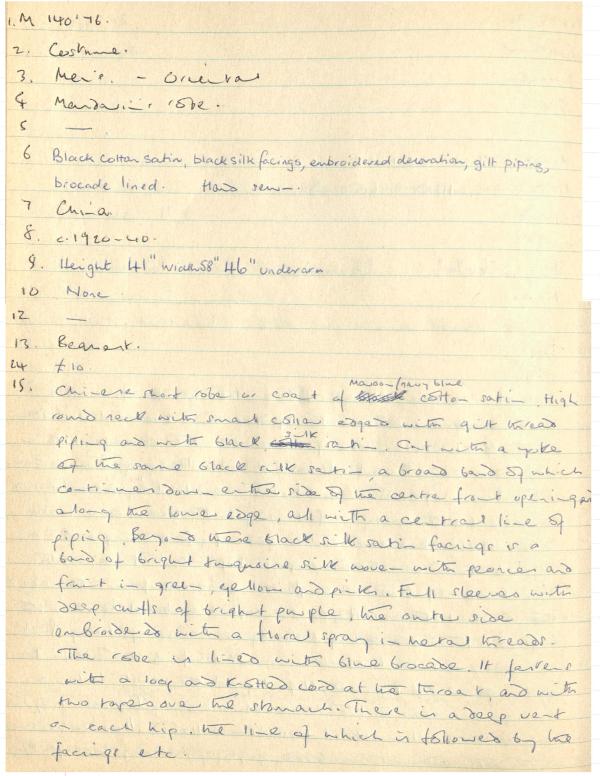 1. M 140'76.
2. Costume.
3. Men's. - Oriental
4 Mandarin's robe.
5 —
6 Black cotton satin, black silk facings, embroidered decoration, gilt piping,
brocade lined. Hand sewn.
7 China.
8. c. 1920-40.
9. Height 41" width 58" 46" underarm
10 None
12 —
13. Bequest.
24 £10.
15. Chinese short robe or coat of maroon/navy blue cotton satin. High
round neck with small collar edged with gilt thread
piping and with black silk satin. Cut with a yoke
of the same black silk satin, a broad band of which
continues down either side of the centre front opening and
along the lower edge, all with a central line of
piping. Beyond these black silk satin facings is a
band of bright turquoise silk woven with peonies and
fruit in green, yellow and pinks. Full sleeves with
deep cuffs of bright purple, the outer side
embroidered with a floral spray in metal threads.
The robe is lined with blue brocade. It fastens
with a loop and knotted cord at the throat, and with
two tapes over the stomach. There is a deep vent
on each hip, the line of which is followed by the
facings etc.